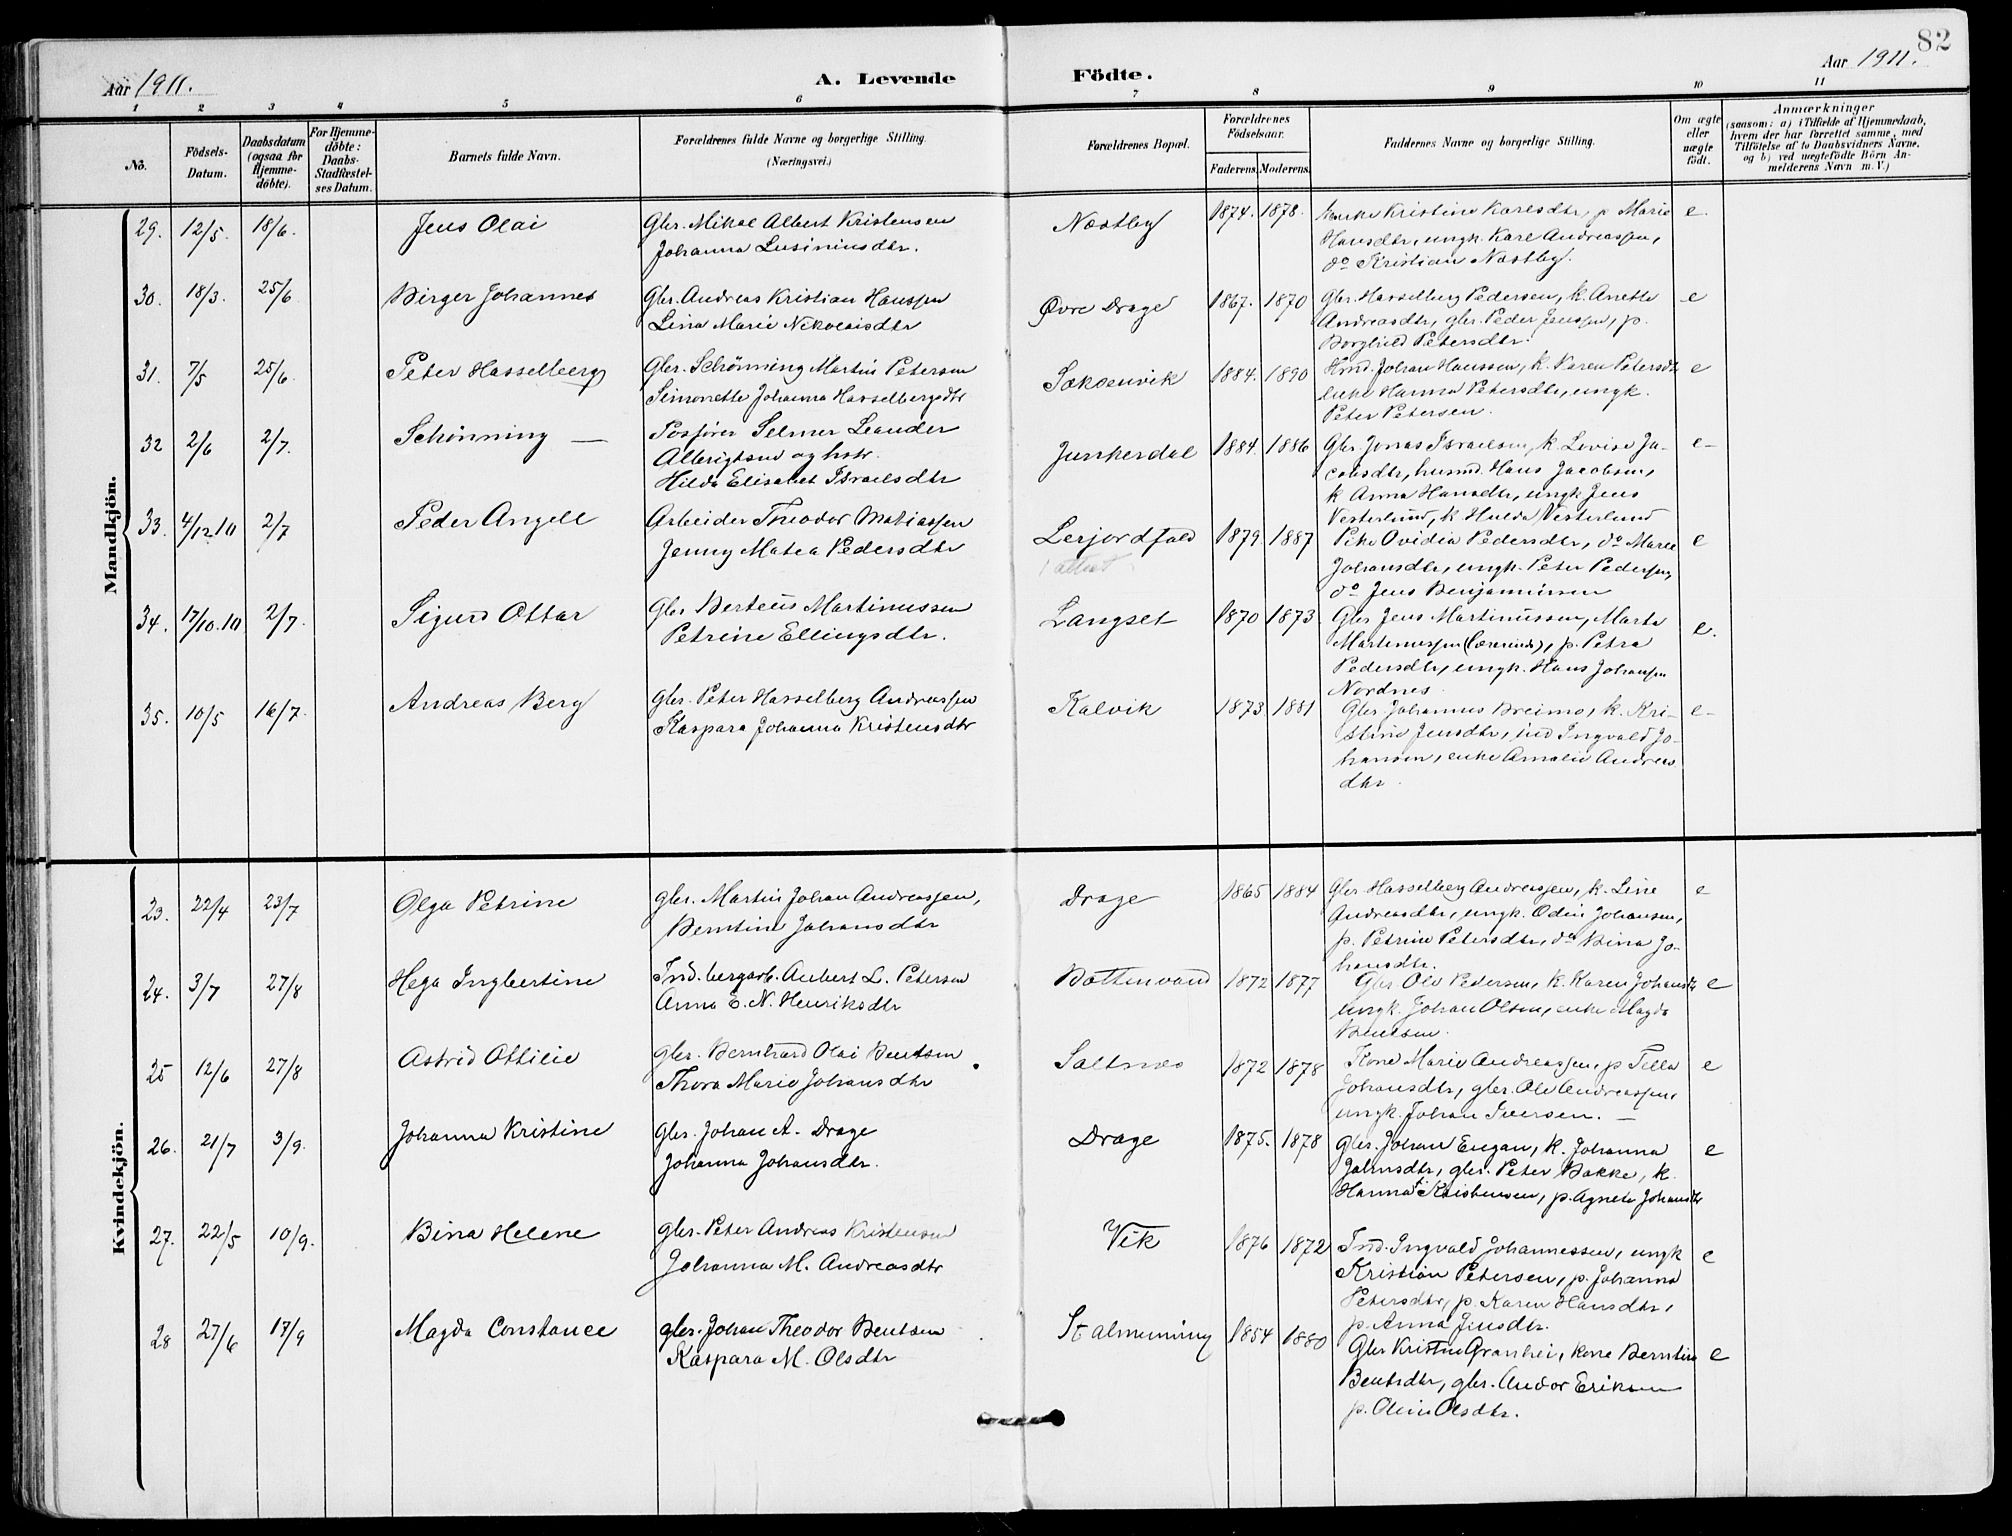 82
Aar 1911.
A. Levende
Födte.
Aar 1911.
1 2 3 4 5 6 7 8 9 10 11
No.
Födsels-
Datum.
Daabsdatum
(ogsaa for
Hjemme-
döbte).
For Hjemme-
döbte:
Daabs-
Stadfæstel-
ses Datum.
Barnets fulde Navn.
Forældrenes fulde Navne og borgerlige Stilling.
(Næringsvei.)
Forældrenes Bopæl.
Forældrenes
Födselsaar.
Faderens. Moderens.
Faddernes Navne og borgerlige Stilling.
Om ægte
eller
uægte
födt.
Anmærkninger
(saasom: a) i Tilfælde af Hjemmedaab,
hvem der har forrettet samme, med
Tilföielse af to Daabsvidners Navne,
og b) ved uegtefödte Börn An-
melderens Navn m. V.)
Mandkjön.
29. 12/5. 18/6. Jens Olai
Gbr. Mikal Albert Kristensen
Johanna Lusiniusdtr.
Næstby 1874. 1878.
Enke Kristine Karlsdtr, p. Marie
Hansdtr, ungk. Karl Andreassen,
do Kristian Næstby.
e.
30. 18/3. 25/6 Birger Johannes
Gbr. Andreas Kristian Hanssen
Lina Marie Nikolaisdtr
Øvre Drage 1867. 1870
Gbr. Hasselberg Pedersen, k. Anette
Andreasdtr, gbr. Peder Jenssen, p.
Borghild Petersdtr.
e
31. 7/5 25/6. Peter Hasselberg
Gbr. Schønning Martin Petersen
Simonette Johanna Hasselbergsdtr
Soksenvik 1884. 1890
Hmd. Johan Hanssen, k. Karen Petersdtr
enke Hanna Petersdtr, ungk.
Peter Petersen.
e
32 2/6 2/7. Schønning —
Posfører Selmer Leander
Albrigtsen og hstr.
Hilda Elisabet Israelsdtr
Junkerdal 1884. 1886
Gbr. Jonas Israelsen, k. Lovise Ja-
cobsdtr, husmd. Hans Jacobsen,
k Anna Hansdtr, ungk Jens
Vesterlund, k Hulda Vesterlund
e-
33. 4/12.10 2/7 Peder Angell
Arbeider Theodor Matiassen
Jenny Matea Pedersdtr
Lerjordfald 1879 1887
Pike Ovidia Pedersdtr, do Marie
Johansdtr, ungk. Peter Pedersen,
do Jens Benjaminsen
e
34. 17/10.10 2/7. Sigurd Ottar
Gbr Berteus Martinussen
Petrine Ellingsdtr.
Langset 1870 1873
Gbr Jens Martinussen, Marta
Martinussen (Lærerinde), p. Petra
Pedersdtr, ungk. Hans Johansen
Nordnes.
e.
35. 10/5 16/7. Andreas Berg
gbr. Peter Hasselberg Andreassen
Kaspara Johanna Kristensdtr
Kalvik 1873 1881
Gbr. Johannes Breimo, k. Kri-
stine Jensdtr, ind Ingvald Jo-
hansen, enke Amalie Andreas
dtr.
e-
Kvindekjön.
23. 22/4 23/7 Olga Petrine
gbr. Martin Johan Andreassen,
Berntine Johansdtr
Drage 1865 1884
Gbr. Hasselberg Andreassen, k. Line
Andreasdtr, ungk. Odin Johansen,
p. Petrine Petersdtr, do Bina Jo-
hansdtr.
e
24. 3/7 27/8 Hega Ingbertine
Ind. bergarb. Anbert L. Petersen
Anna E. N. Henriksdtr
Bottenvand 1872 1877
Gbr. Ole Pedersen, k. Karen Johansdtr
ungk. Johan Olsen, enke Magda
Bentsen.
e
25 12/6 27/8 Astrid Ottilie
gbr. Bernhard Olai Bentsen
Thora Marie Johansdtr
Saltnes 1872 1878
Kone Marie Andreassen, p Tella
Johansdtr, gbr. Ole Andreassen,
ungk. Johan Iversen. —
e
26. 21/7 3/9. Johanna Kristine
Gbr. Johan A. Drage
Johanna Johansdtr.
Drage 1875. 1878
Gbr. Johan Engan, k. Johanna
Johnsdtr, gbr. Peter Bakke, k.
Hanna Kristensen, p. Agnete Johansdtr
e
27. 22/5 10/9. Bina Helene
gbr. Peter Andreas Kristensen
Johanna M. Andreasdtr
Vik 1876 1872
Ind. Ingvald Johannessen, ungk
Kristian Petersen, p. Johanna
Petersdtr, p. Karen Hansdtr,
p. Anna Jensdtr.
e
28 27/6 17/9 Magda Constance
gbr. Johan Theodor Bentsen
Kaspara M. Olsdtr
St almenning 1854 1880
Gbr Kristen Granhei, kone Berntine
Bentsdtr, gbr. Andor Eriksen
p. Oline Olsdtr.
e